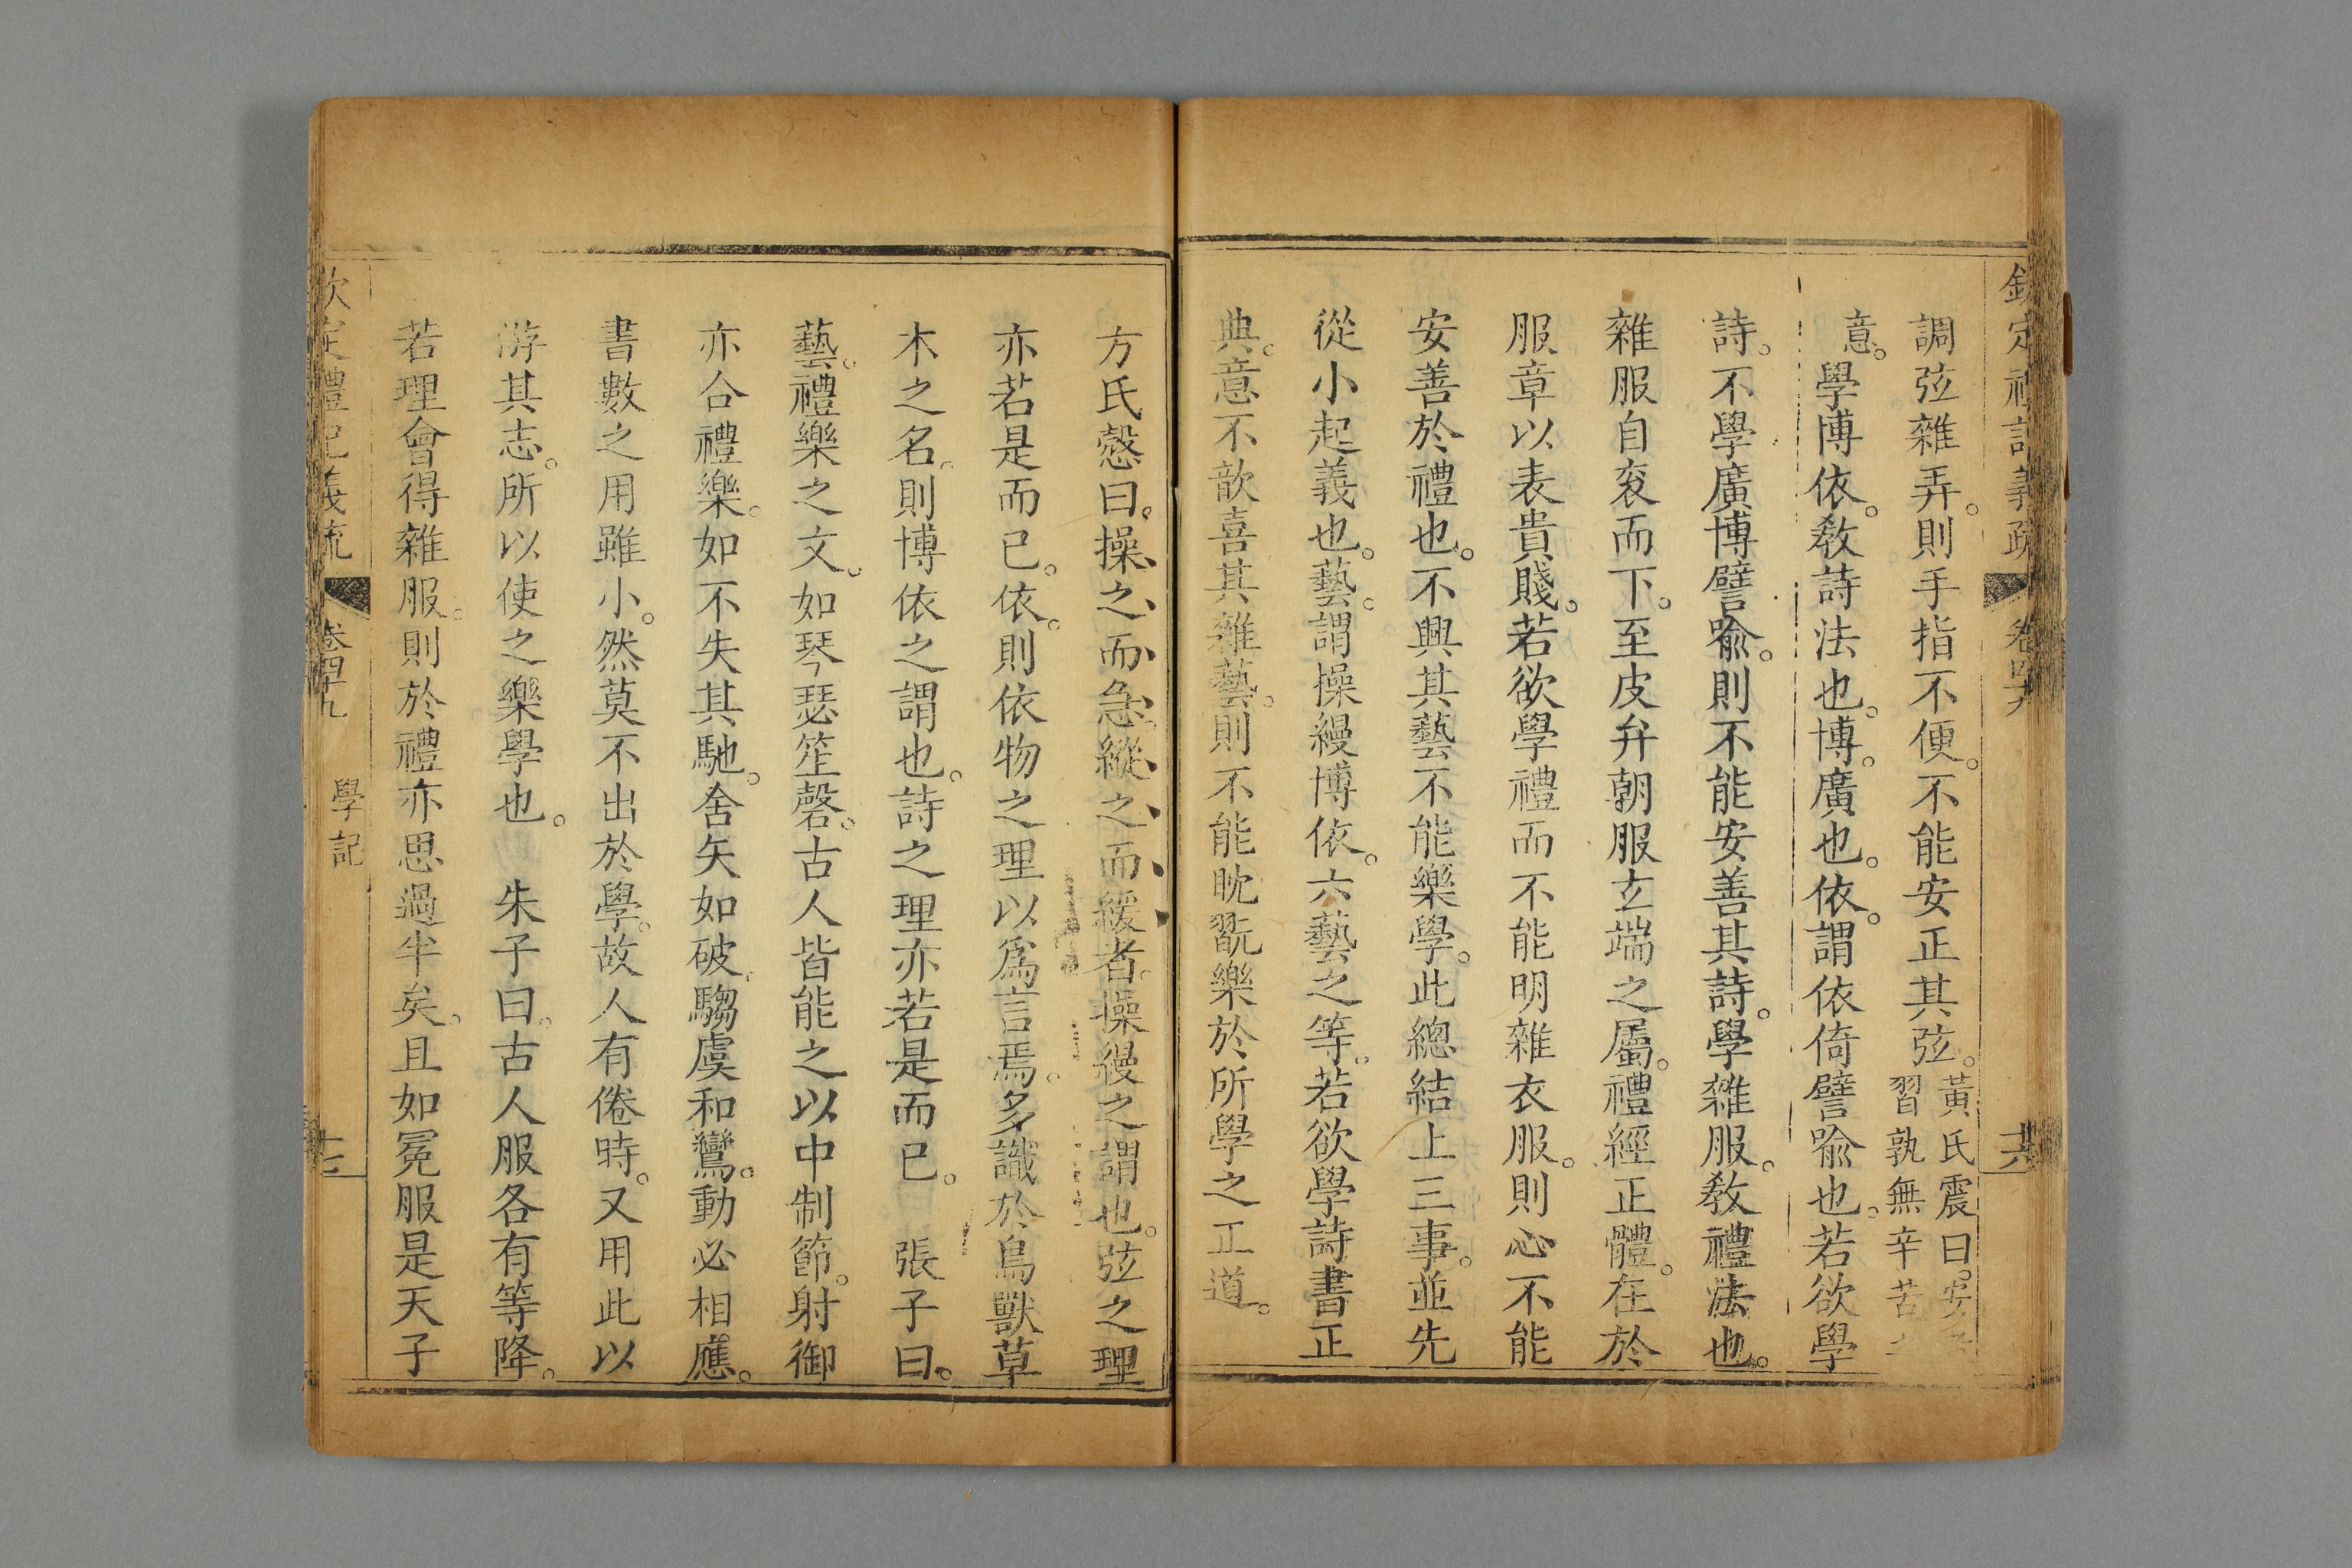 欽定禮記義疏 卷四十九 十六
調弦雜弄。則手指不便。不能安正其弦。黃氏震曰。安
習孰無辛苦之
意。學博依。敎詩法也。博。廣也。依。謂依倚譬喻也。若欲學
詩。不學廣博譬喻。則不能安善其詩。學雜服。敎禮法也。
雜服自袞而下。至皮弁朝服玄端之屬。禮經正體。在於
服章以表貴賤。若欲學禮而不能明雜衣服。則心不能
安善於禮也。不興其藝不能樂學。此總結上三事。並先
從小起義也。藝。謂操縵博依。六藝之等。若欲學詩書正
典。意不歆喜其雜藝。則不能眈翫樂於所學之正道。
方氏慤曰。操之而急。縱之而緩者。操縵之謂也。弦之理
亦若是而已。依。則依物之理以爲言焉。多識於鳥獸草
木之名。則博依之謂也。詩之理亦若是而已。 張子曰。
藝。禮樂之文。如琴瑟笙磬。古人皆能之以中制節。射御
亦合禮樂。如不失其馳。舍矢如破。騶虞和鸞。動必相應。
書數之用雖小。然莫不出於學。故人有倦時。又用此以
游其志。所以使之樂學也。 朱子曰。古人服各有等降。
若理會得雜服。則於禮亦思過半矣。且如冕服是天子
欽定禮記義疏 卷四十九 學記 十七